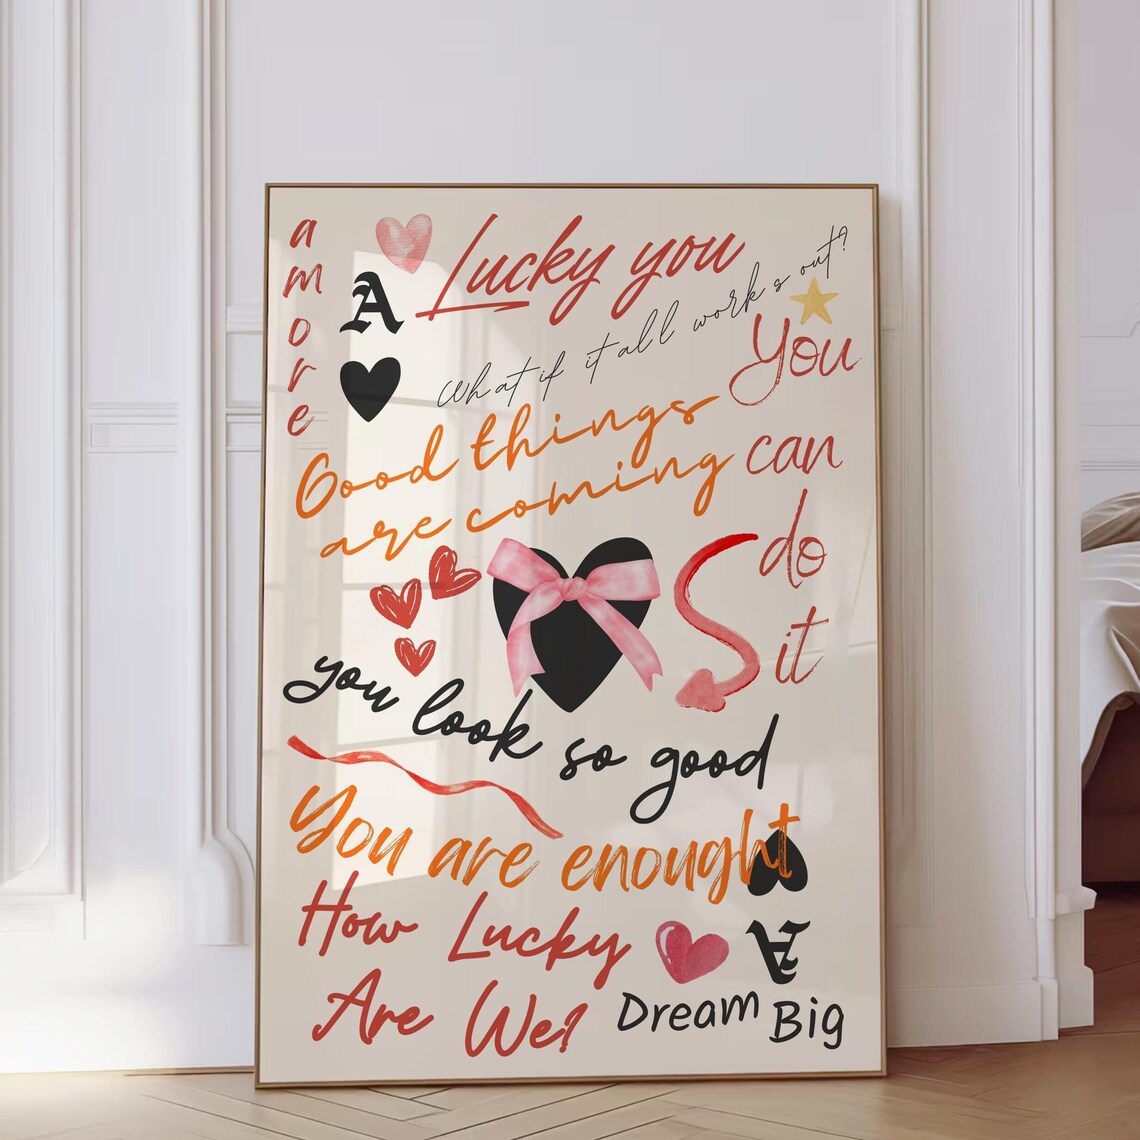 amore
A
Lucky you
What if it all works out?
You
can
do
it
Good things
are coming
you look so good
You are enought
How Lucky
Are We?
A
Dream Big